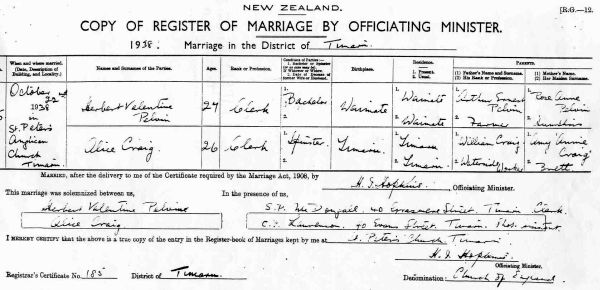 NEW ZEALAND.
[R.G.—12.
COPY OF REGISTER OF MARRIAGE BY OFFICIATING MINISTER.
1938. Marriage in the District of Timaru.
When and where married. (Date, Description of Building, and Locality.)
Names and Surnames of the Parties.
Ages.
Rank or Profession.
Conditions of Parties—
1. Bachelor or Spinster
Birthplace.
Residence.
1. Present.
2. Usual.
PARENTS.
(1) Father's Name and Surname.
(2) His Rank or Profession.
(1) Mother's Name.
(2) Her Maiden Surname.
October 22
1938
in
St. Peters
Anglican
Church
Timaru.
Herbert Valentine
Pelvin
27
Clerk
1. Bachelor
2.
Waimate
1. Waimate
2. Waimate
Arthur Ernest
Pelvin
Farmer
Rose Anne
Pelvin
Alice Craig.
26
Clerk
1. Spinster.
2.
Timaru.
1. Timaru
2. Timaru.
William Craig
Waterside Worker
Annie
Craig
Brett
MARRIED, after the delivery to me of the Certificate required by the Marriage Act, 1908, by
H. S. Hopkins. Officiating Minister.
This marriage was solemnized between us,
In the presence of us,
Herbert Valentine Pelvin
Alice Craig.
S. F. McDougall, 40 Street, Timaru Clerk.
C. F. 40 Evans Street. Timaru.
I HEREBY CERTIFY that the above is a true copy of the entry in the Register-book of Marriages kept by me at St. Peters Church, Timaru
H. S. Hopkins
Officiating Minister.
Registrar's Certificate No. 185 District of Timaru. Denomination: Church of England.